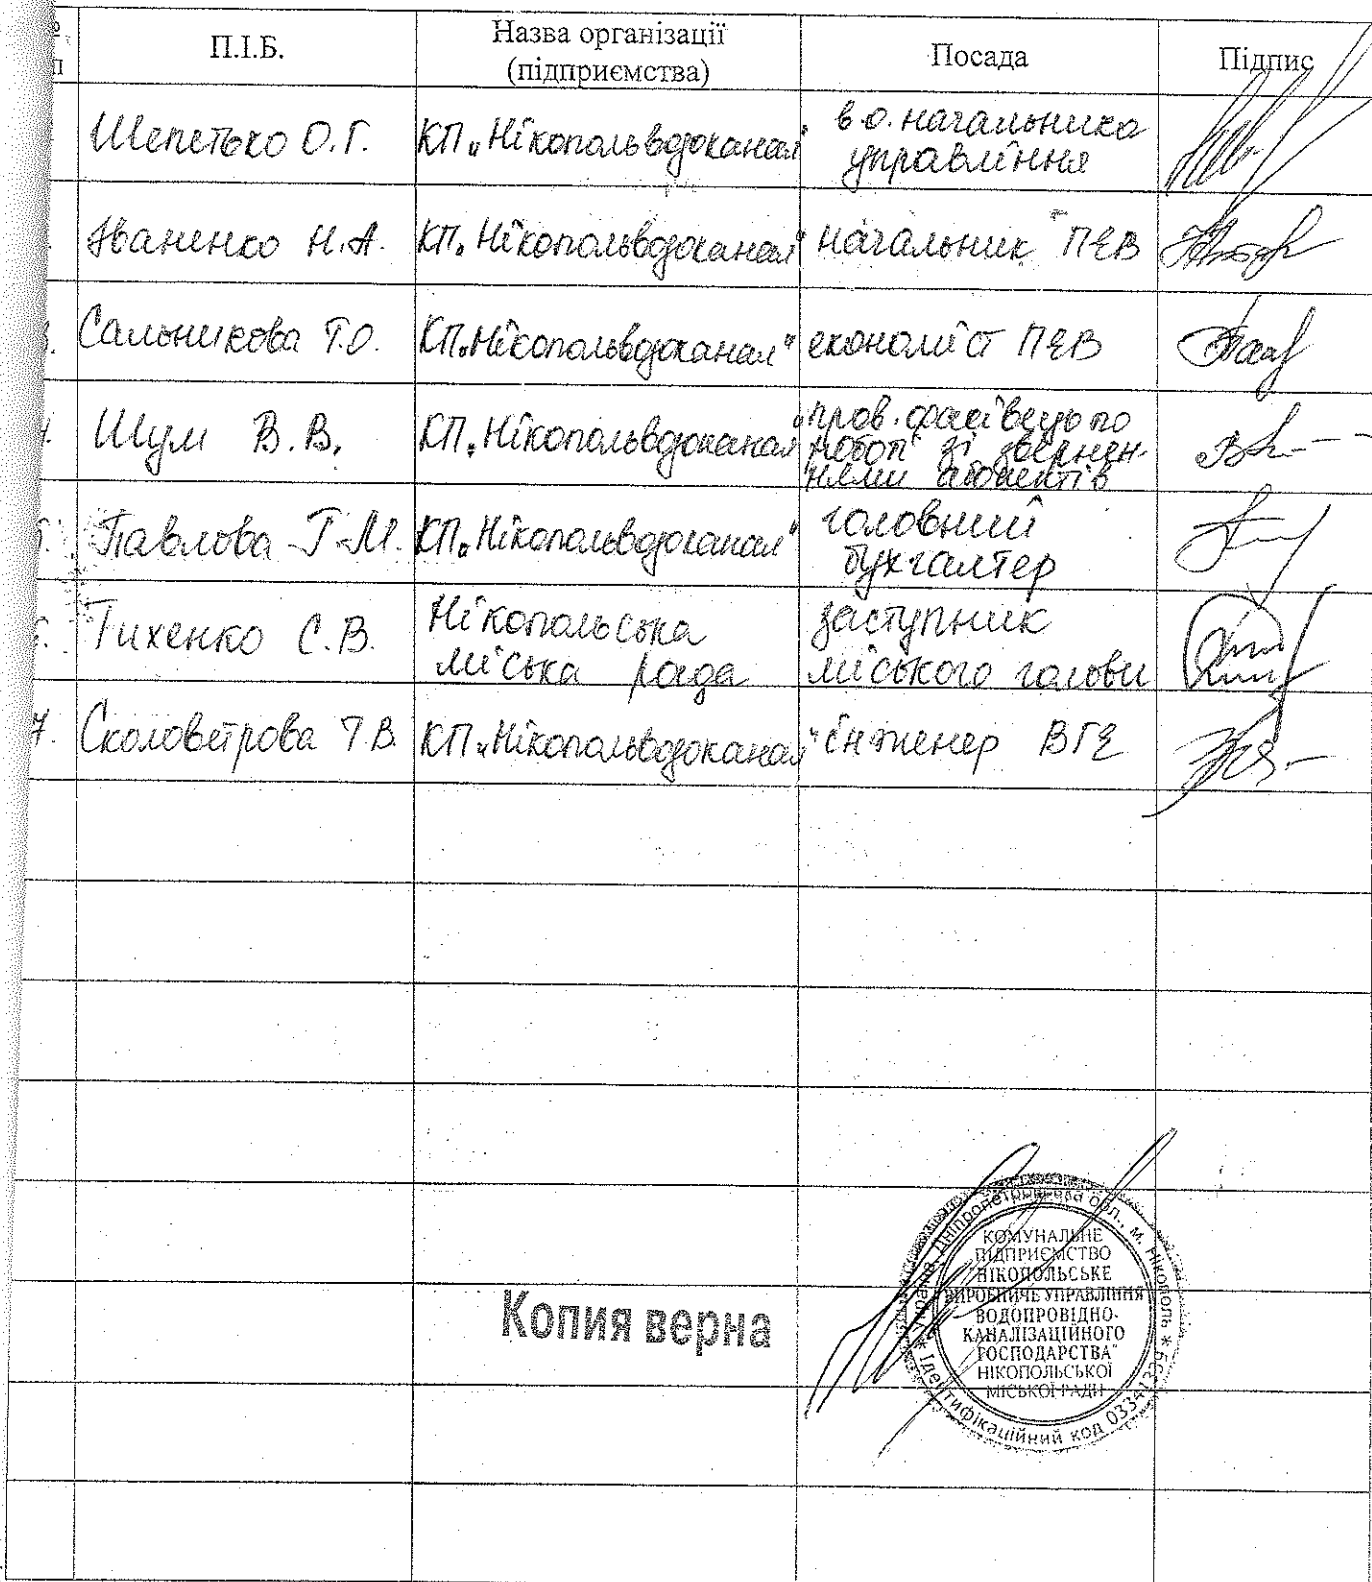 № П.І.Б. Назва організації (підприємства) Посада Підпис
п
Шепетько О.Г. КП „Нікопольводоканал" в.о. начальника
управління
Іваненко Н.А. КП „Нікопольводоканал" начальник ПЕВ
3. Сальникова Т.О. КП „Нікопольводоканал" економіст ПЕВ
4. Шум В.В. КП „Нікопольводоканал" пров. фахівець по
роботі зі звернен-
нями абонентів
5. Павлова Г.М. КП „Нікопольводоканал" головний
бухгалтер
6. Тихенко С.В. Нікопольська
міська рада заступник
міського голови
7. Сколоветрова Т.В. КП „Нікопольводоканал" інженер ВГЕ
Копия верна
Україна * Дніпропетровська обл., м. Нікополь *
Ідентифікаційний код
КОМУНАЛЬНЕ
ПІДПРИЄМСТВО
"НІКОПОЛЬСЬКЕ
ВИРОБНИЧЕ УПРАВЛІННЯ
ВОДОПРОВІДНО-
КАНАЛІЗАЦІЙНОГО
ГОСПОДАРСТВА"
НІКОПОЛЬСЬКОЇ
МІСЬКОЇ РАДИ